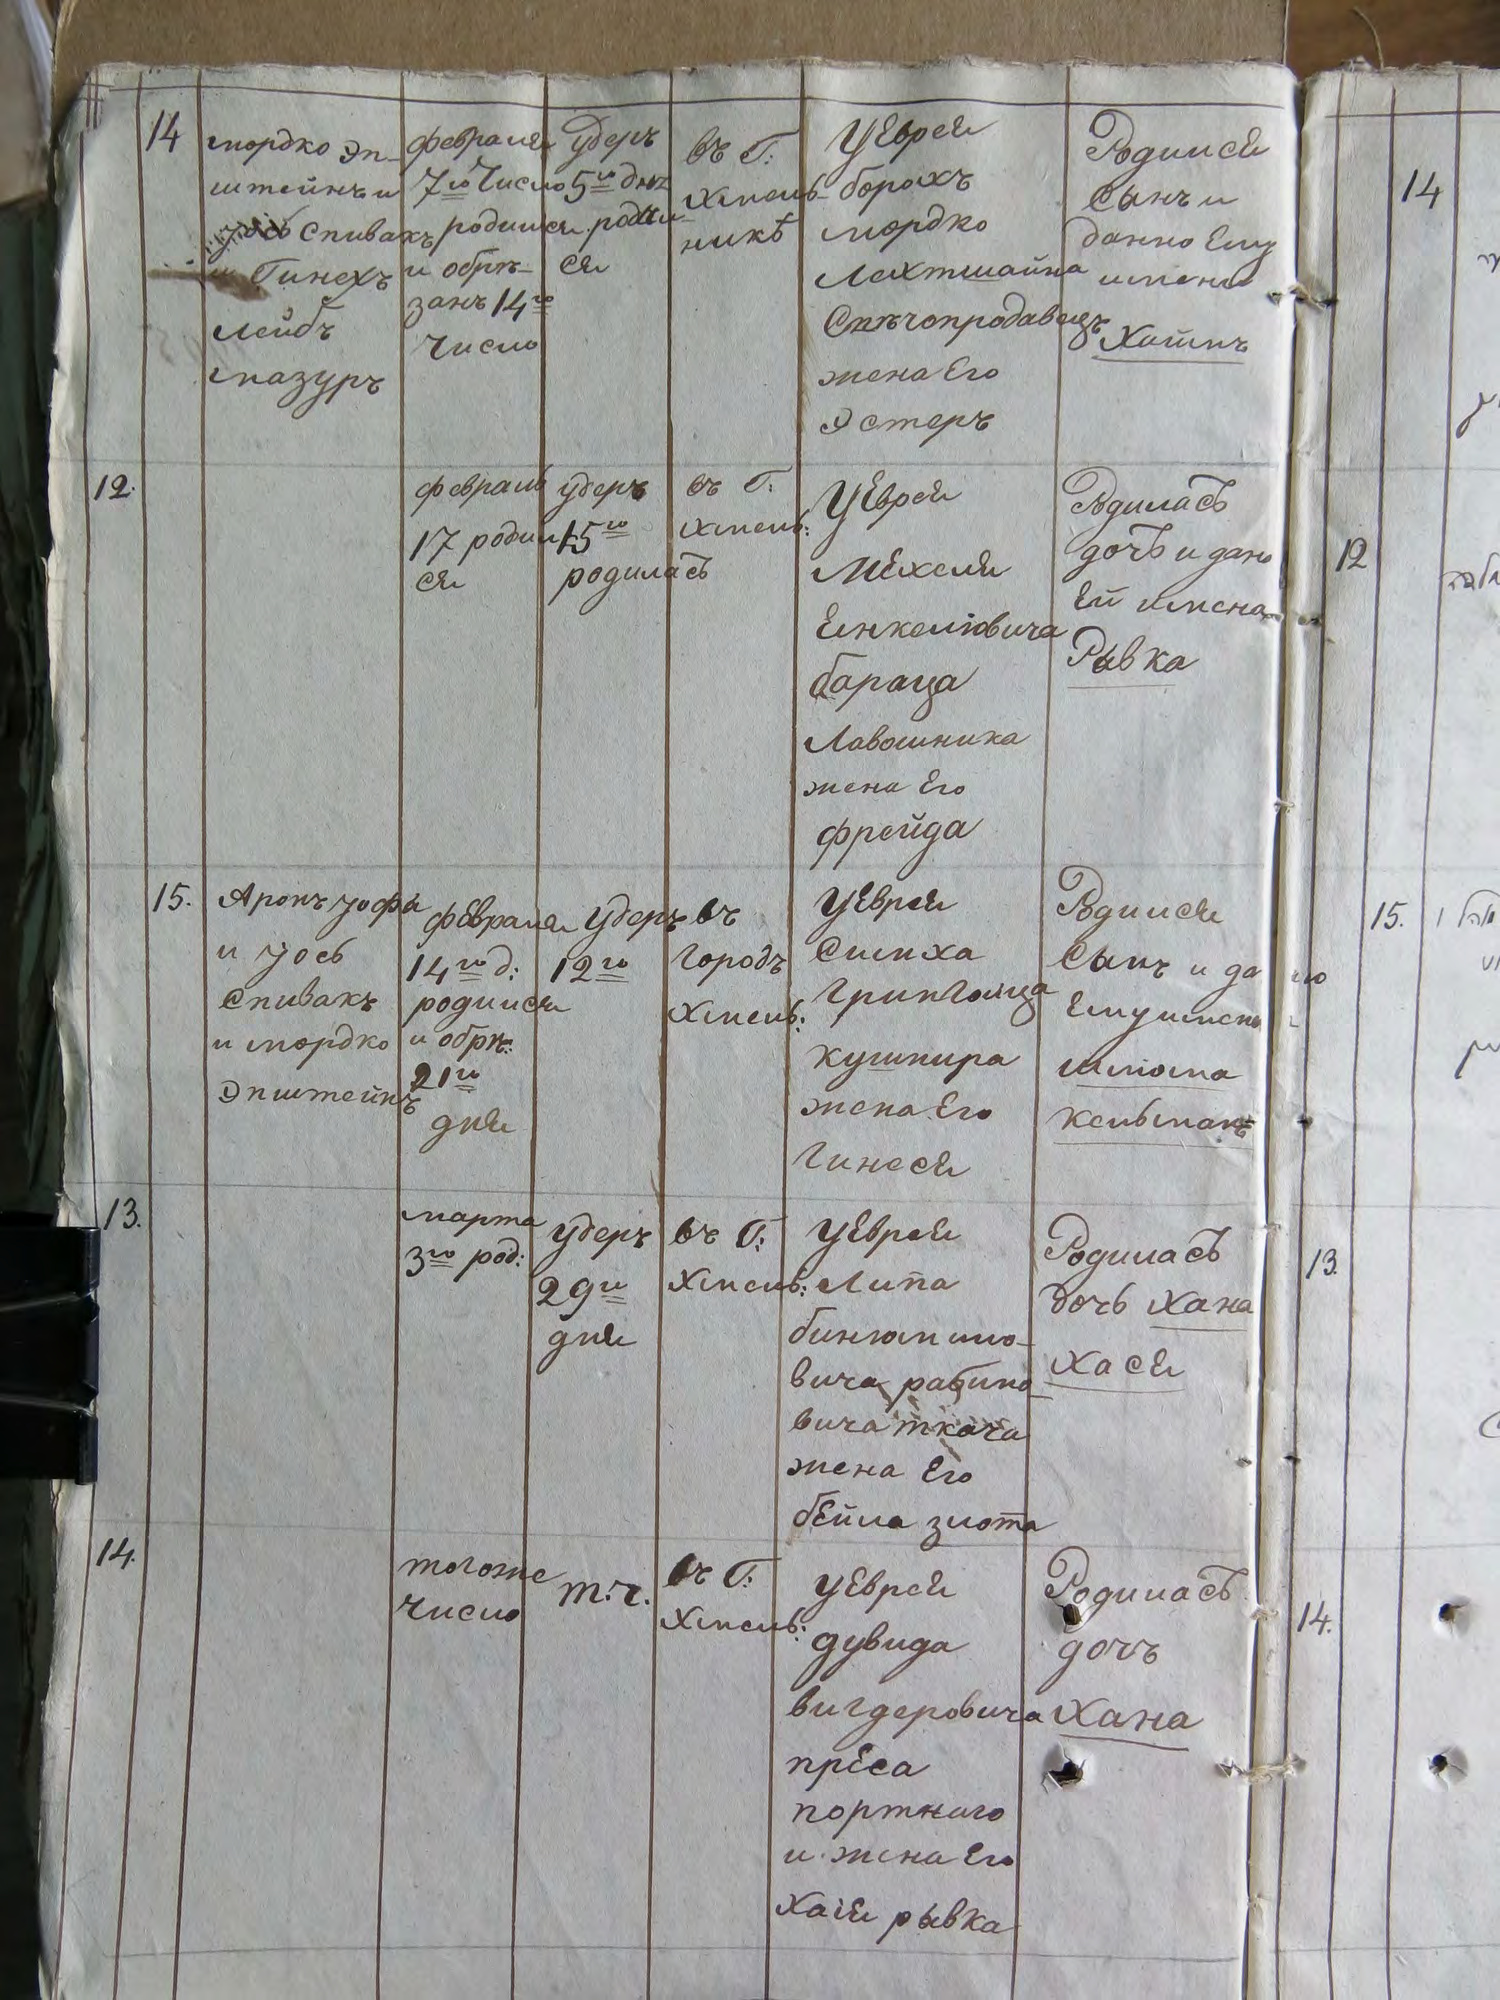 14
мордко эп-
штейнъ и
спивакъ
и Пинехъ
лейбъ
мазуръ
февраля
7го Число
родился
и обре-
занъ 14го
Число
удеръ
5го дня
роди
ся
въ Г:
Хмель-
никѣ
У Еврея
борохъ
мордко
Лехтшайна
Свѣчопродавецъ
жена Его
Эстеръ
Родился
Сынъ и
данно Ему
имени
12.
февраль
17 родил
ся
удеръ
15го
родилась
въ Г:
Хмель:
У Еврея
Мехеля
Еинкелювича
бараца
Лавошника
жена Его
фрейда
Родилась
дочь и дано
Ей имена
Рывка
15.
Аронъ
и Уось
Спивакъ
и мордко
Эпштейнъ
февраля
14го д:
родился
и обрѣ:
21го
дня
удеръ
12го
въ
Городъ
Хмель:
У Еврея
Симха
кушнира
жена Его
Гинеся
Родился
Сынъ и да но
Ему имен
шлома
кельманъ
13.
марта
3го род:
удеръ
29го
дня
въ Г:
Хмель:
У Еврея
Липа
бинюмино-
вича рабино-
вича ткача
жена Его
бейла злота
Родилась
дочь Хана
Хася
14.
тогоже
Число
т.ч.
въ Г:
Хмель:
У Еврея
дувида
вигдеровича
преса
портного
и жена Его
Хая рывка
Родилась
дочъ
Хана
14
12
15.
13.
14.